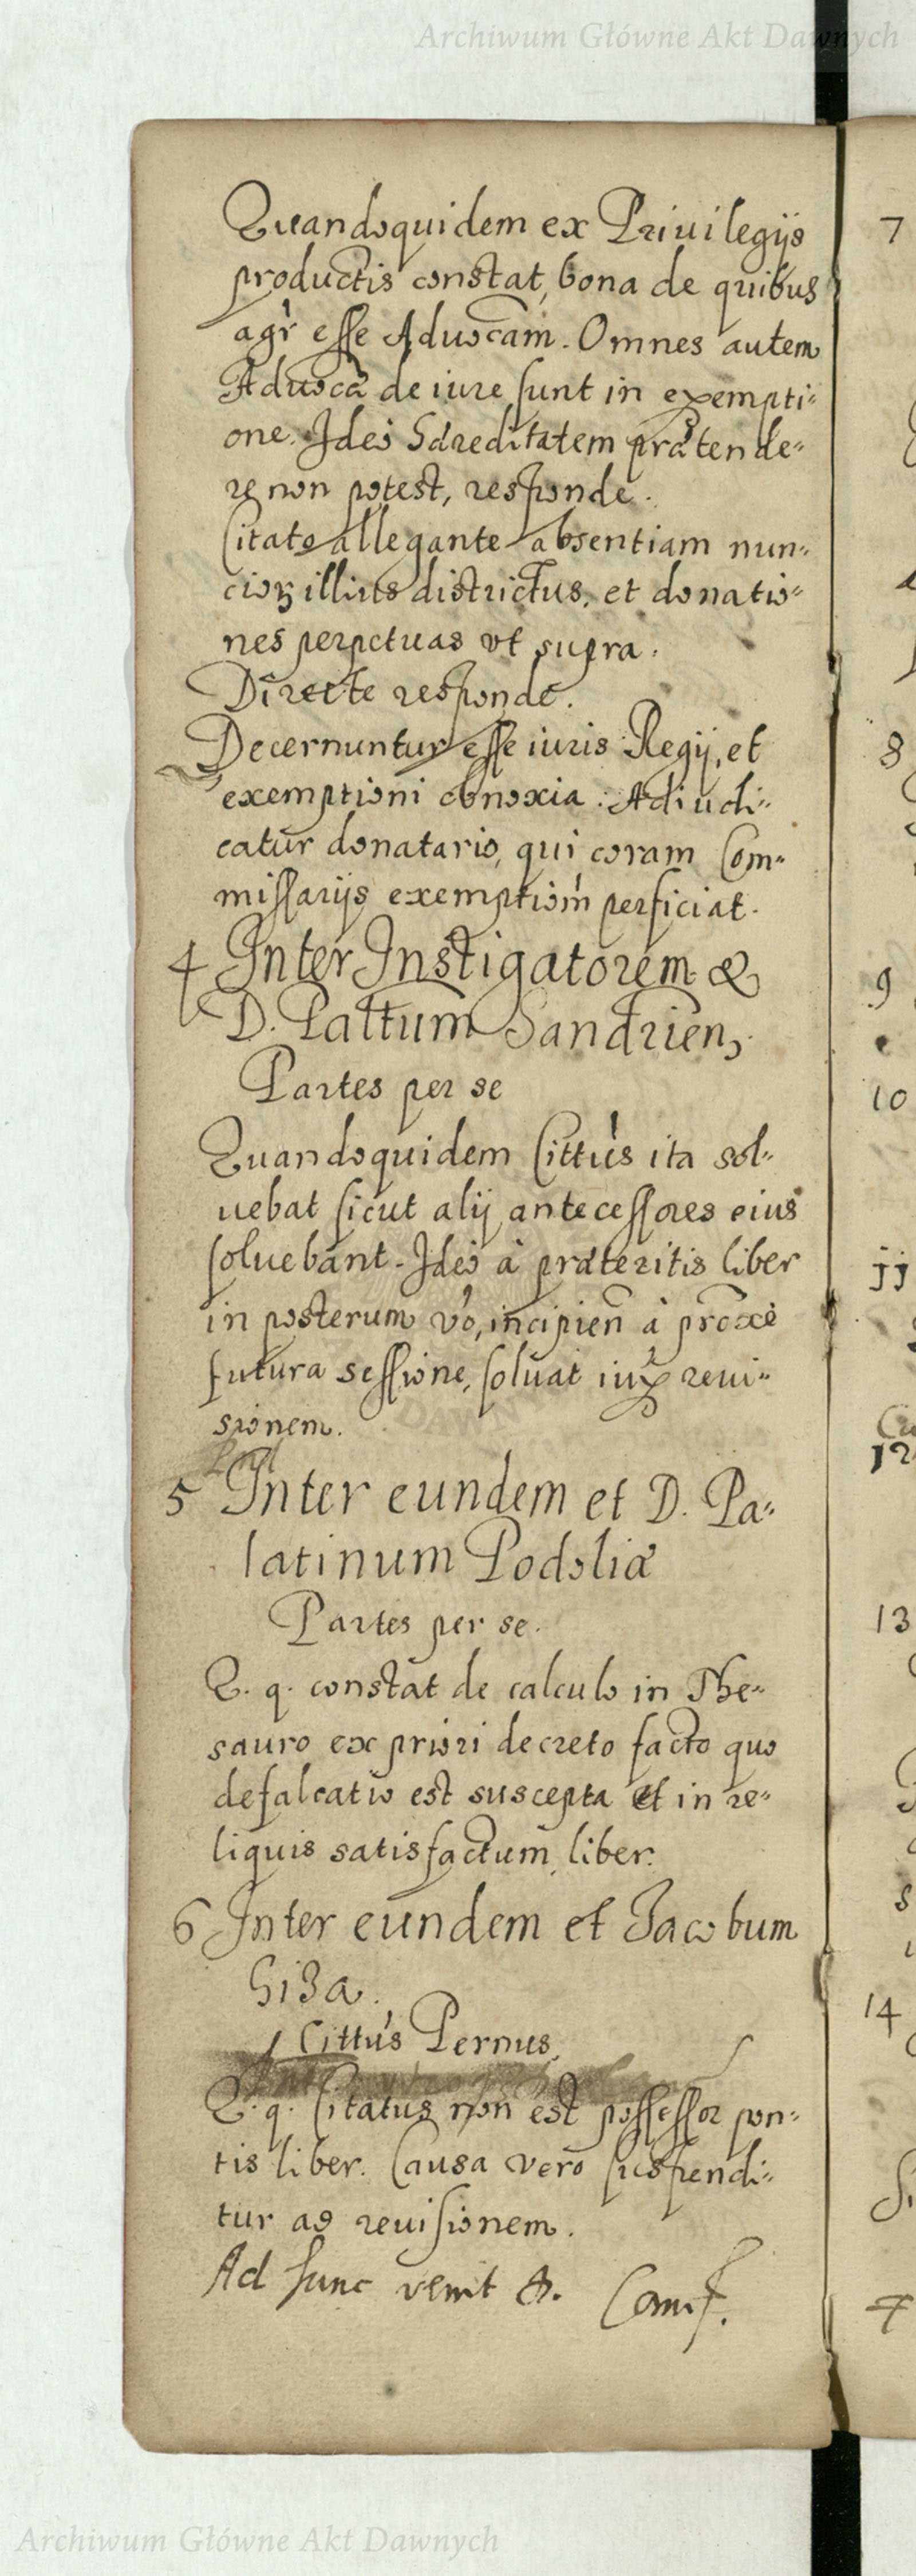 Archiwum Główne Akt Dawnych
Quandoquidem ex Priuilegijs
productis constat, bona de quibus
agr̃ esse Aduocãm. Omnes autem
Aduocã de iure sunt in exempti-
one. Ideo hæreditatem præten de-
re non potest, responde.
Citato allegante absentiam nun-
cioꝝ illius districtus, et donatio-
nes perpetuas vt supra.
Directe responde.
Decernuntur esse iuris Regij, et
exemptioni obnoxia. Adiudi-
catur donatario, qui coram Com-
missarijs exemptiom̃ perficiat.
4 Inter Instigatorem &
D. Palttum Sandrien,
Partes per se
Quandoquidem Cittus ita sol-
uebat sicut alij antecessores eius
soluebant. Ideo à præteritis liber
in posterum vo, incipien à proxe
futura sessione, soluat iuxͣ reui-
sionem.
5 Inter eundem et D. Pa-
latinum Podoliæ
Partes per se.
Q. q. constat de calculo in The-
sauro ex priori decreto facto quo
defalcatio est suscepta et in re-
liquis satisfactum liber.
6 Inter eundem et Jacobum
Giza.
Cittus Pernus,
Q. q. Citatus non est possessor pon-
tis liber. Causa vero suspendi-
tur ad reuisionem.
Ad hunc venit &.
7
8
9
10
jj
12
13
14
Archiwum Główne Akt Dawnych